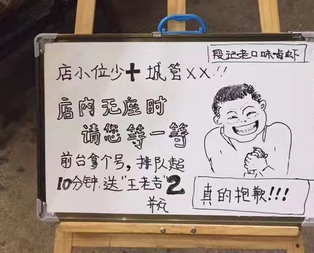 段记老口味卤虾
店小位少+城管××!!
店内无座时
请您等一等
前台拿个号,排队超
10分钟.送"王老吉"2
瓶
真的抱歉!!!